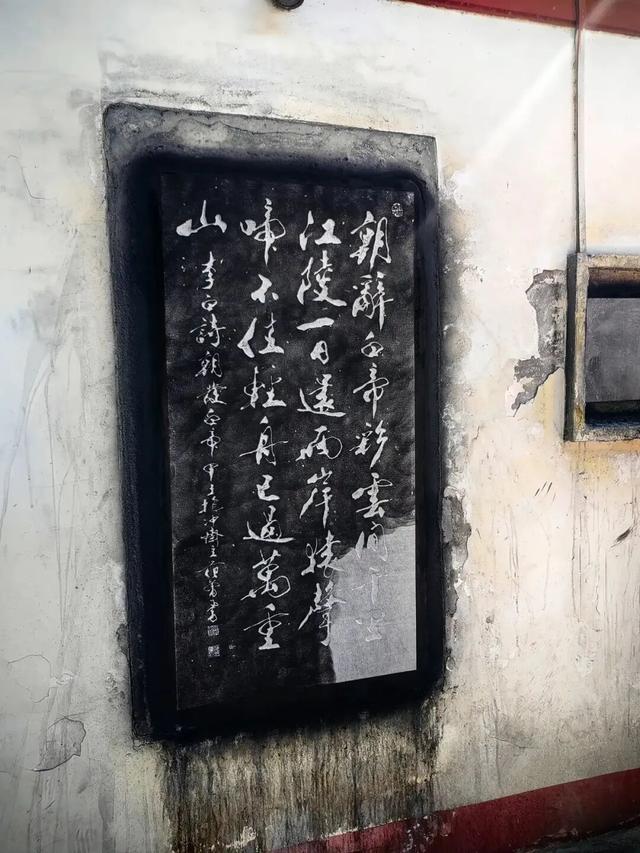 朝辭白帝彩雲間千里
江陵一日還兩岸猿聲
啼不住輕舟已過萬重
山 李白詩朝發白帝 書